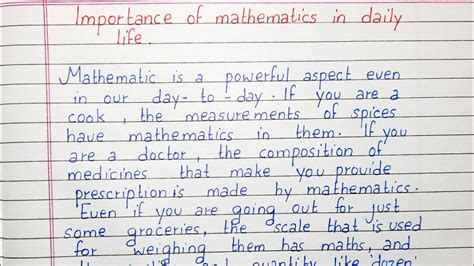 Importance of mathematics in daily
life.
Mathematic is a powerful aspect even
in our day-to-day. If you are a
cook, the measurements of spices
have mathematics in them. If you
are a doctor, the composition of
medicines that make you provide
prescription is made by mathematics.
Even if you are going out for just
some groceries, the scale that is used
for weighing them has maths, and
quantity like dozen